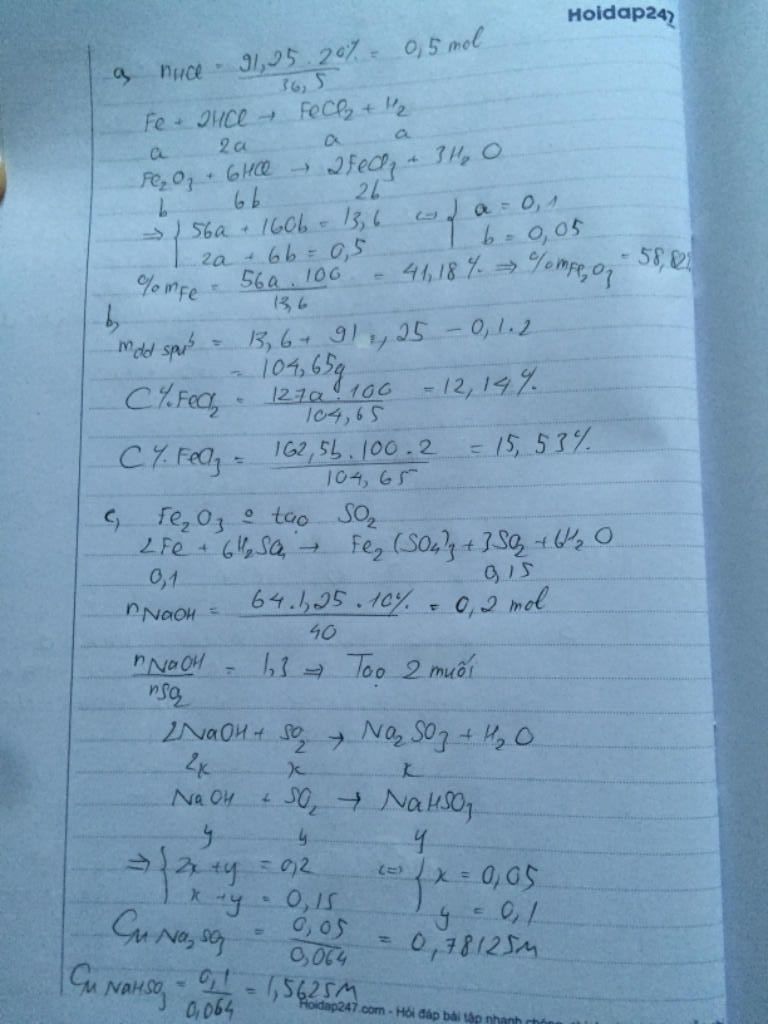 Hoidap247
a, nHCl = 91,25 . 20% / 36,5 = 0,5 mol
Fe + 2HCl → FeCl2 + H2
a 2a a a
Fe2O3 + 6HCl → 2FeCl3 + 3H2O
b 6b 2b
⇒ { 56a + 160b = 13,6 ⇔ { a = 0,1
2a + 6b = 0,5 b = 0,05
%mFe = 56a . 100 / 13,6 = 41,18% ⇒ %mFe2O3 = 58,82%
b,
mdd spư = 13,6 + 91,25 - 0,1.2
= 104,65g
C%FeCl2 = 127a . 100 / 104,65 = 12,14%
C%FeCl3 = 162,5b . 100 . 2 / 104,65 = 15,53%
c, Fe2O3 o tạo SO2
2Fe + 6H2SO4 → Fe2(SO4)3 + 3SO2 + 6H2O
0,1 0,15
nNaOH = 64.1,25.10% / 40 = 0,2 mol
nNaOH / nSO2 = 1,3 ⇒ Tạo 2 muối
2NaOH + SO2 → Na2SO3 + H2O
2x x x
NaOH + SO2 → NaHSO3
y y y
⇒ { 2x + y = 0,2 ⇔ { x = 0,05
x + y = 0,15 y = 0,1
CM Na2SO3 = 0,05 / 0,064 = 0,78125M
CM NaHSO3 = 0,1 / 0,064 = 1,5625M
Hoidap247.com - Hỏi đáp bài tập nhanh chóng